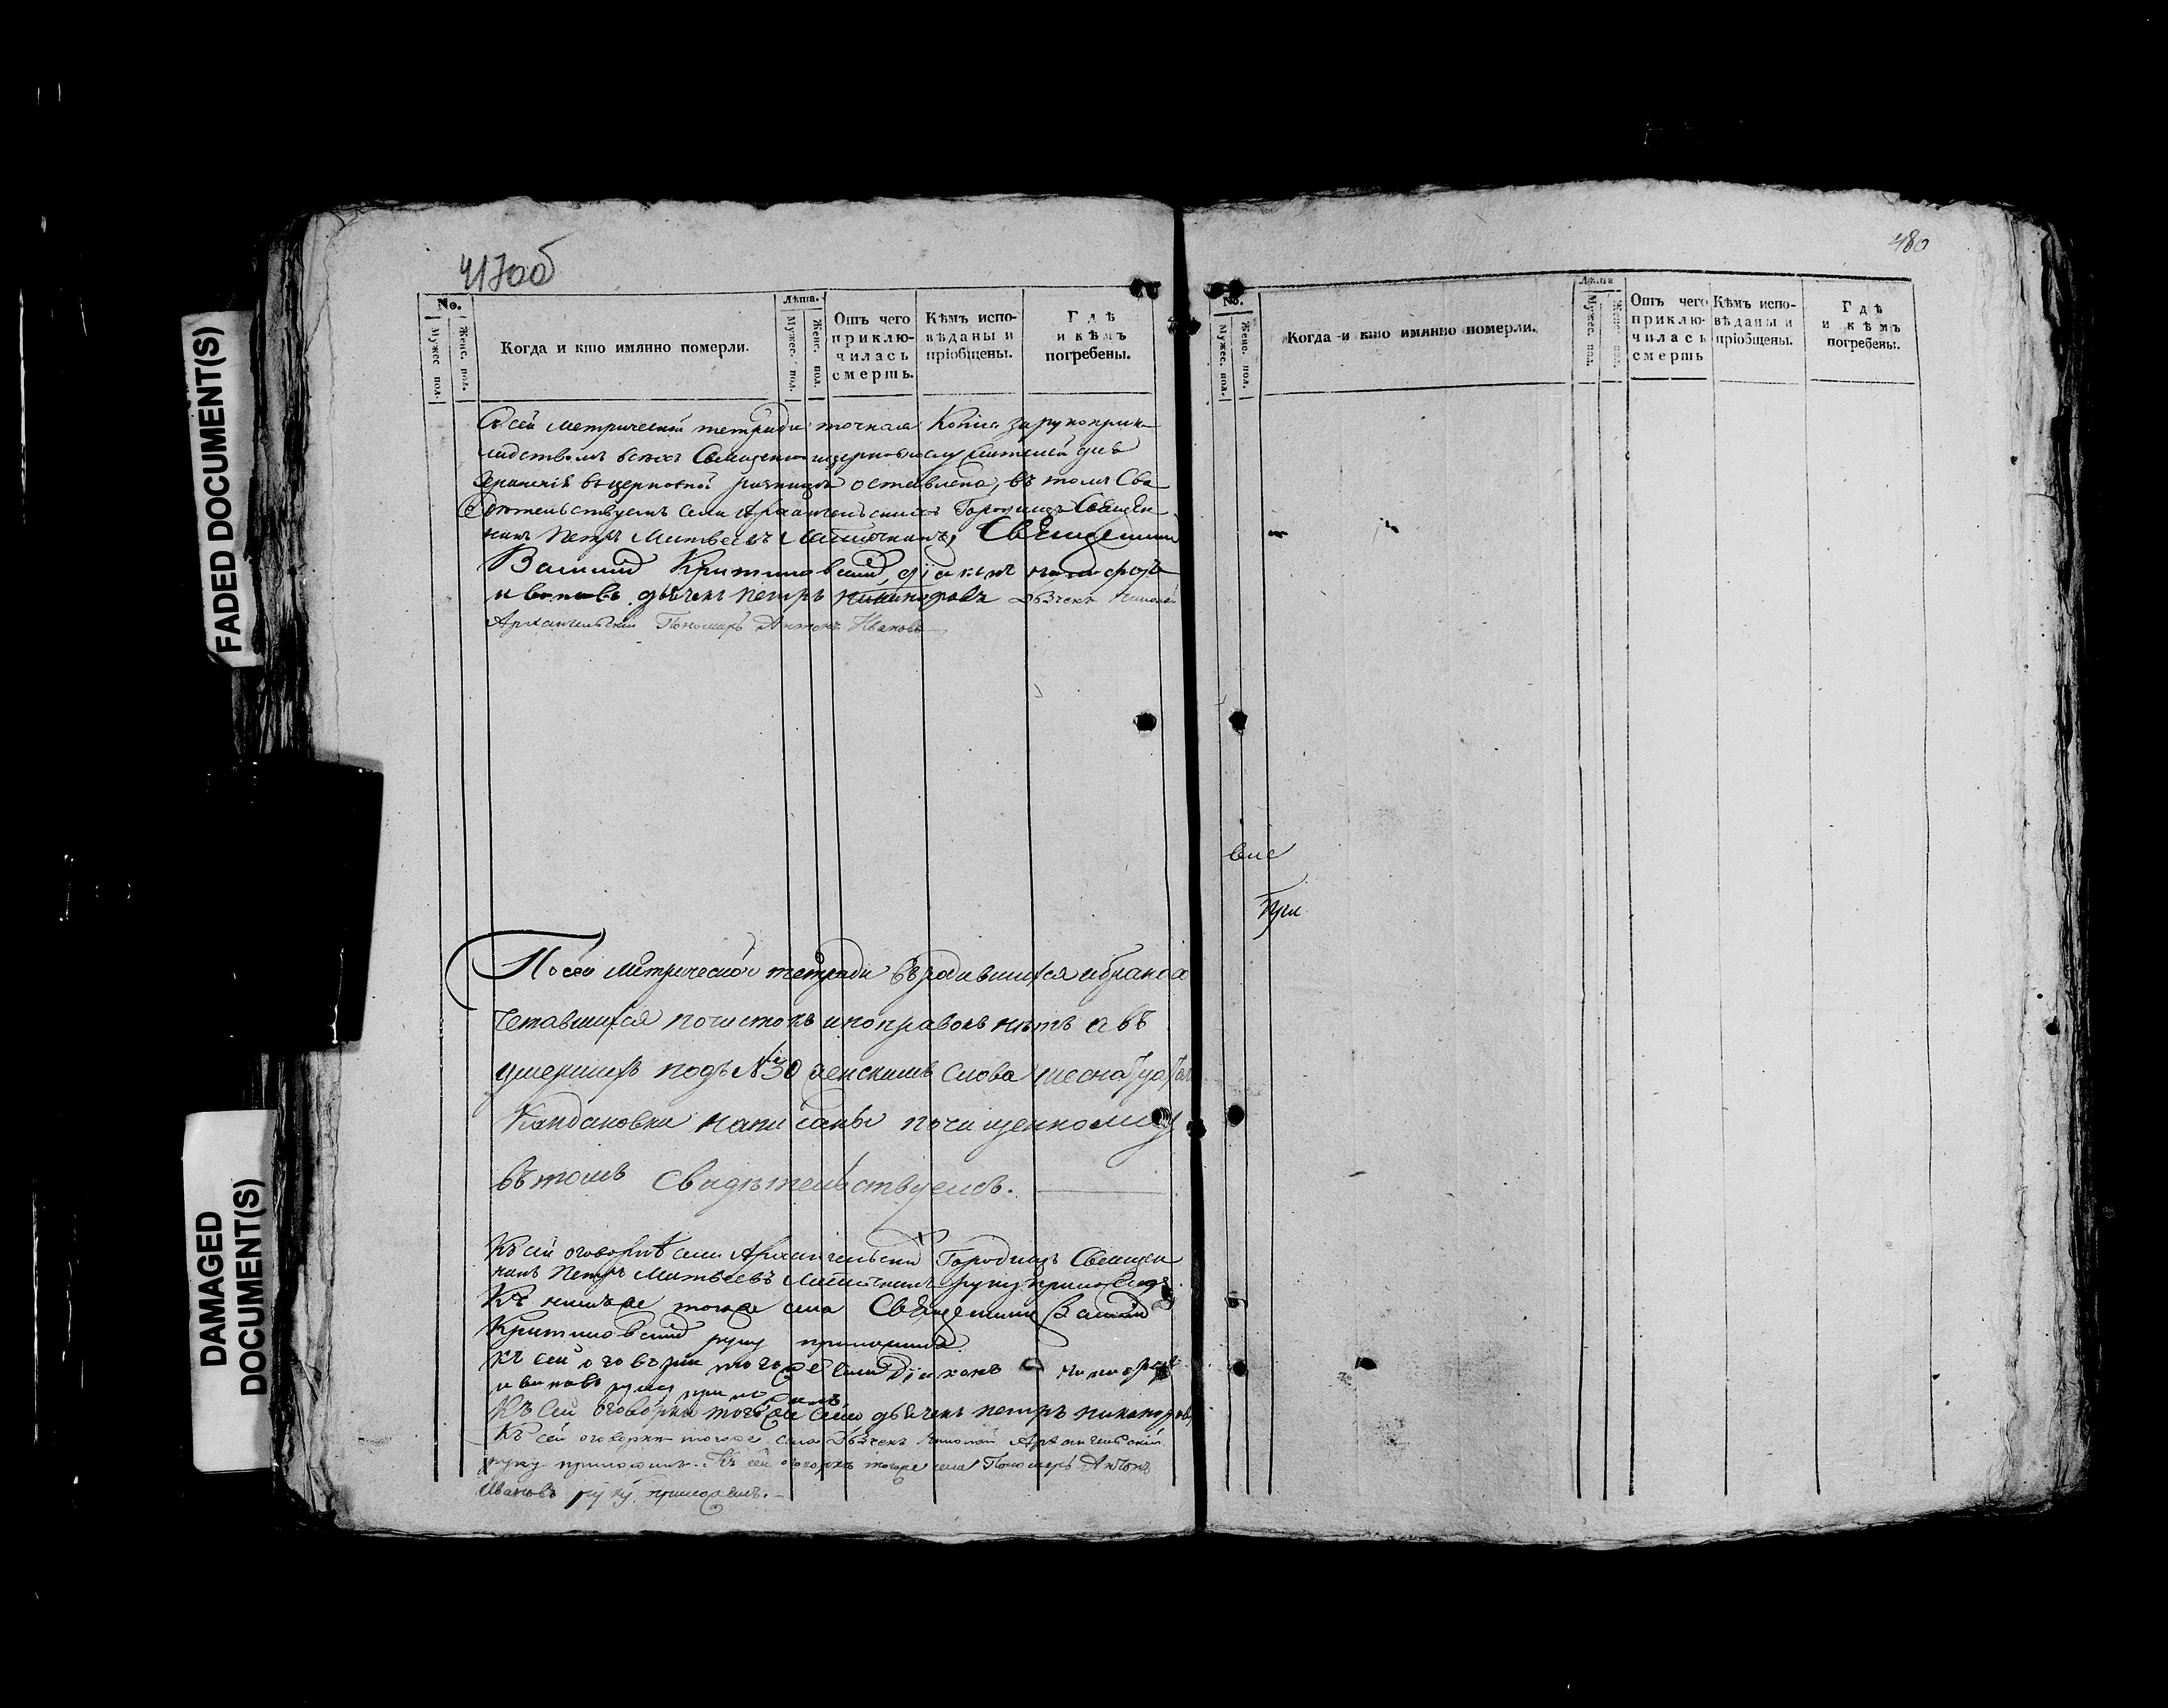 FADED DOCUMENT(S)
DAMAGED
DOCUMENT(S)
480
№.
Мужес. пол.
Женс. пол.
Когда и кто имянно померли.
Лѣта.
Мужес. пол.
Женс. пол.
Отъ чего
приклю-
чилась
смерть.
Кѣмъ испо-
вѣданы и
пріобщены.
Гдѣ
и кѣмъ
погребены.
Съ сей метрической тетради точная копія за рукоприк
ладствомъ всехъ Священно церковнослужителей для
храненія въ церковной ризницѣ оставлена, въ томъ Сви
дѣтельствуемъ села Архангельскихъ Городищъ Священ
никъ Петръ Матвеевъ Священникъ
Василий діаконъ
ивановъ дьячекъ петръ никаноровъ Дьячекъ Николай
Архангельскій Пономарь Антонъ Ивановъ
По сей метрической тетради въ родившихся и бракосо
четавшихся почистокъ и поправокъ нѣтъ а въ
умершихъ подъ №30 женскимъ слова
написаны по чищенному
въ томъ Свидѣтельствуемъ.
Къ сей оговоркѣ села Архангельскихъ Городищъ Священ
никъ Петръ Матвеевъ руку приложилъ
Къ нимъ же тогоже села Священникъ Василий
руку приложилъ
Къ сей оговорки тогоже села Діаконъ
ивановъ руку приложилъ
Къ сей оговорки тогоже села дьячекъ петръ никаноровъ
Къ сей оговорки тогоже села Дьячекъ Николай Архангельскій
руку приложилъ. Къ сей оговоркѣ тогоже села Пономарь Антонъ
Ивановъ руку приложилъ.
№.
Мужес. пол.
Женс. пол.
Когда и кто имянно померли.
Лѣта
Мужес. пол.
Женс. пол.
Отъ чего
приклю-
чилась
смерть
Кѣмъ испо-
вѣданы и
пріобщены.
Гдѣ
и кѣмъ
погребены.